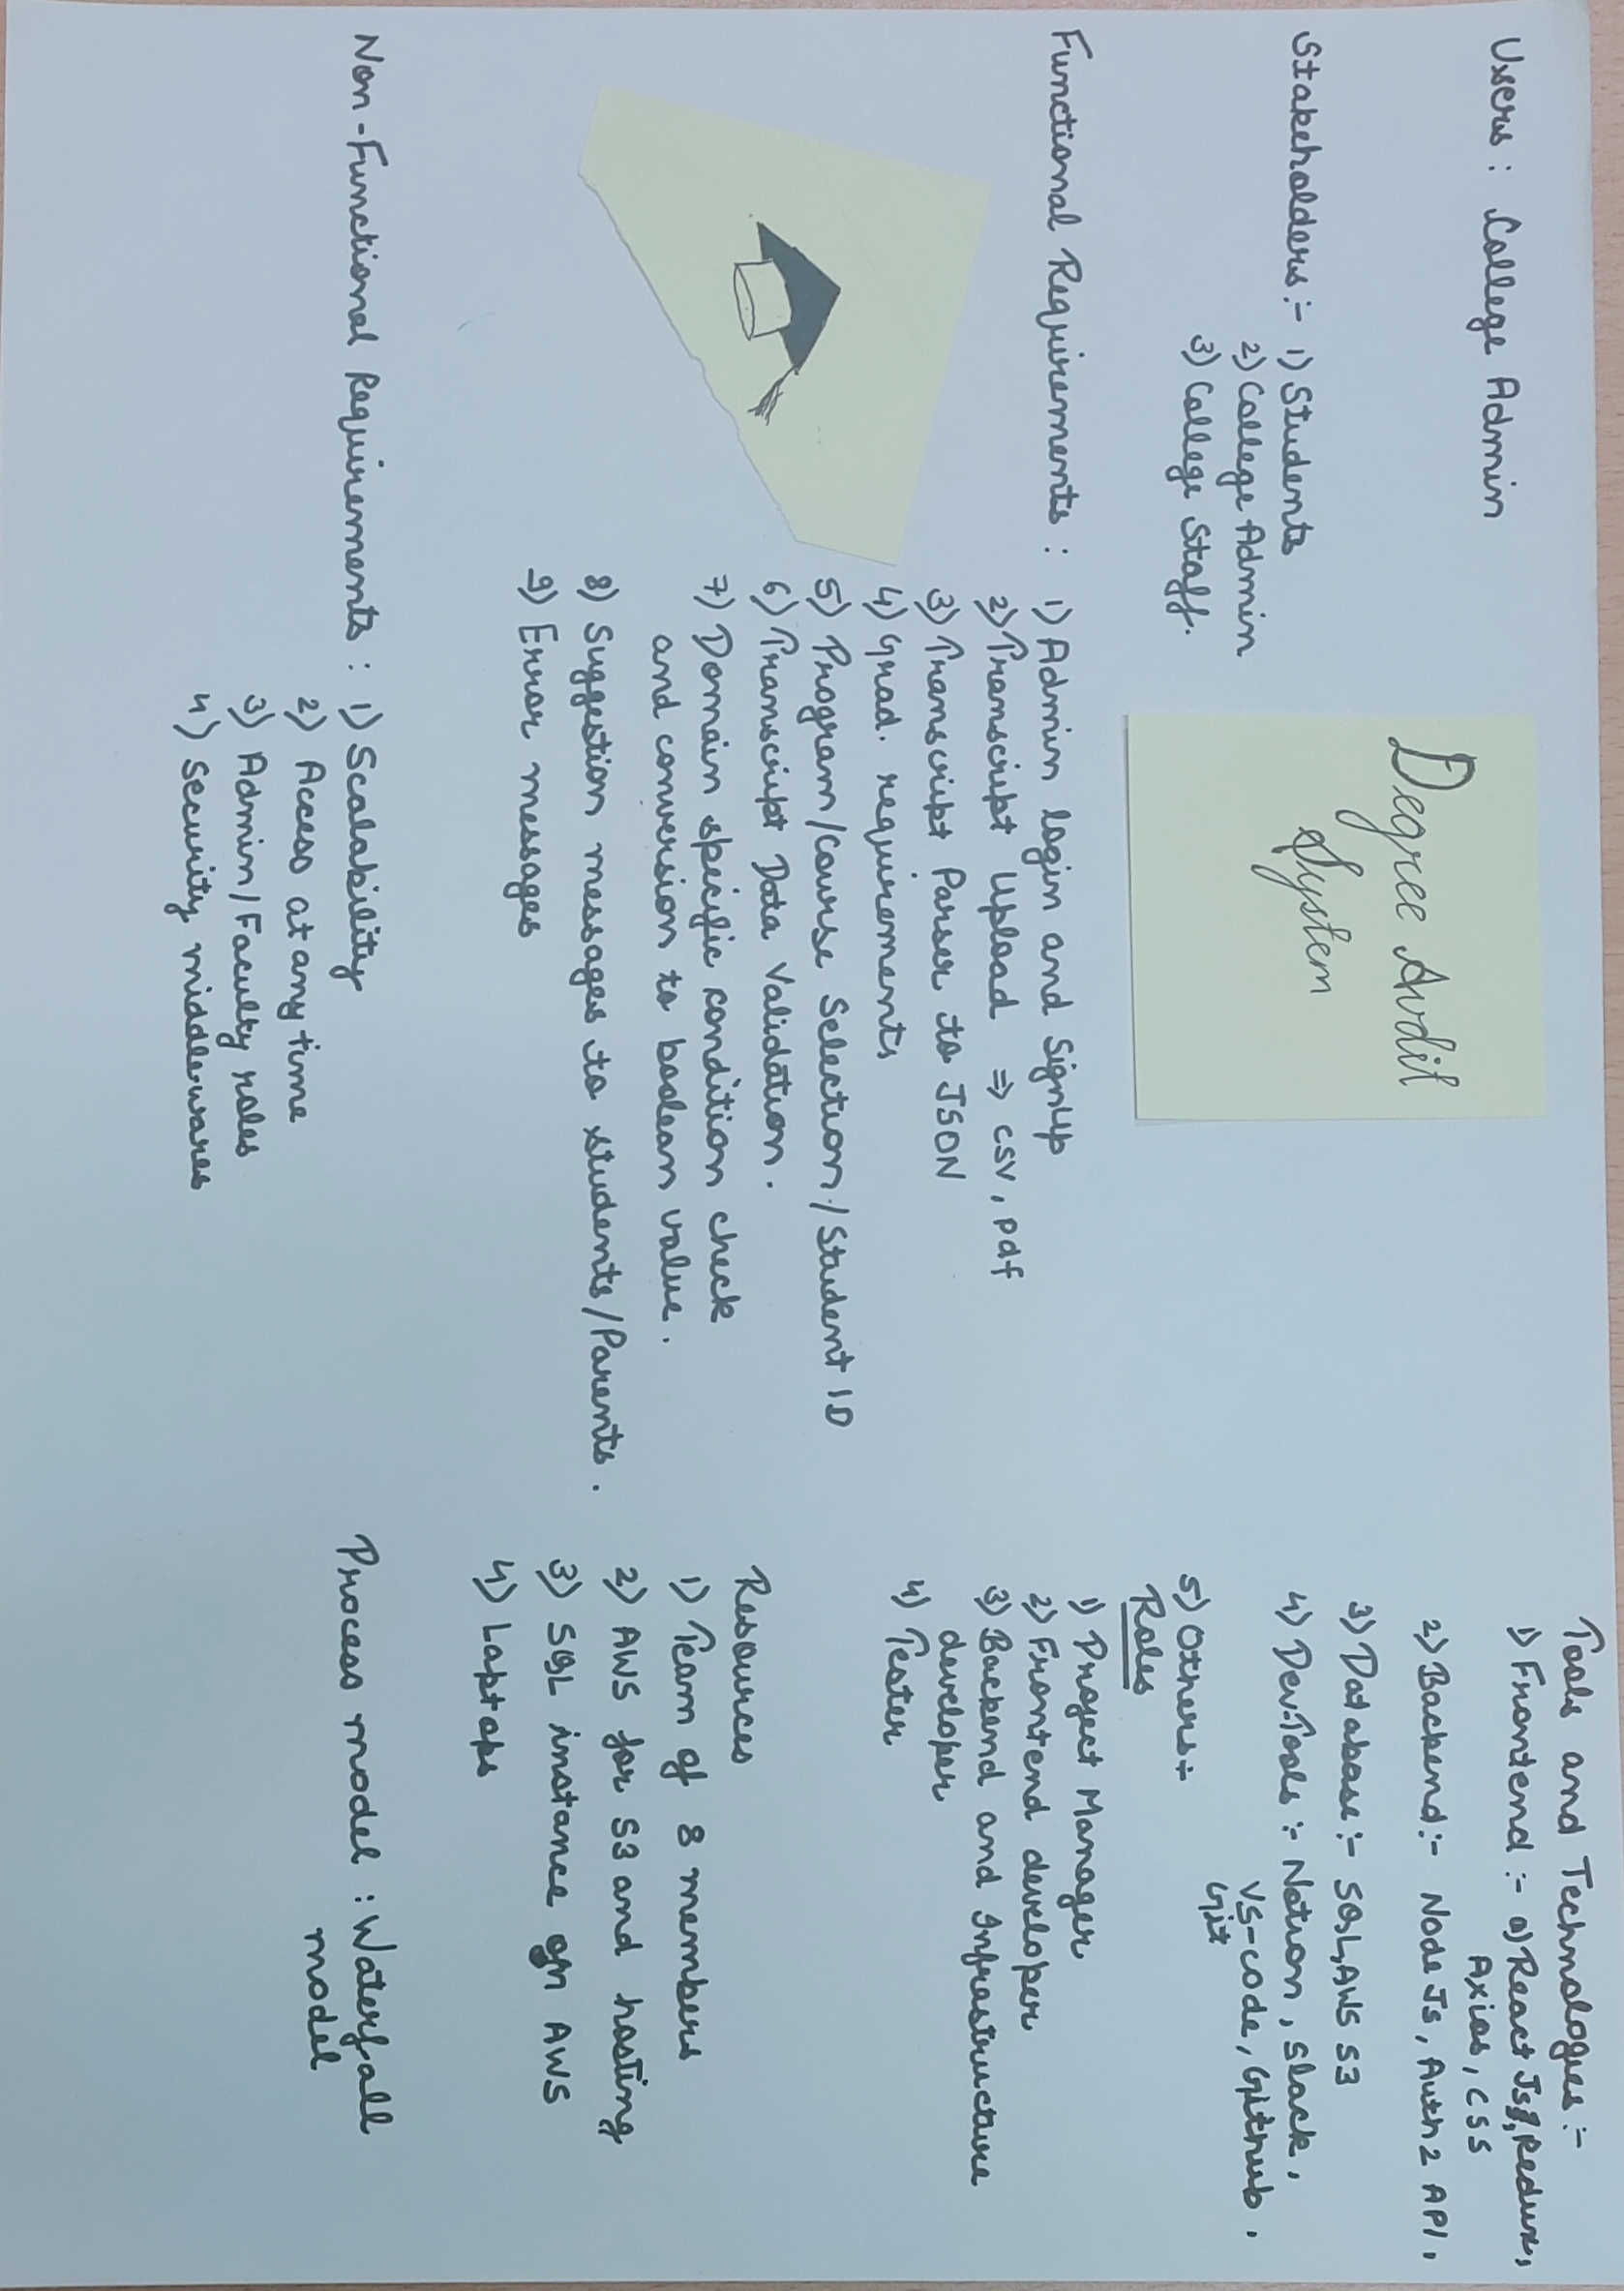 Users : College Admin
Stakeholders :- 1) Students
2) College Admin
3) College Staff.
Degree Audit
System
Functional Requirements : 1) Admin login and SignUp
2) Transcript Upload ⇒ CSV, pdf
3) Transcript Parser to JSON
4) Grad. requirements
5) Program/Course Selection/Student ID
6) Transcript Data Validation.
7) Domain specific condition check
and conversion to boolean value.
8) Suggestion messages to students/Parents.
9) Error messages
Non-Functional Requirements : 1) Scalability
2) Access at any time
3) Admin/Faculty roles
4) Security middlewares
Tools and Technologies :-
1) Frontend :- a) React Js, Redux,
Axios, CSS
2) Backend :- Node Js, Auth2 API.
3) Database :- SQL, AWS S3
4) Dev.Tools :- Notion, Slack,
VS-code, Github.
Git
5) Others :-
Roles
1) Project Manager
2) Frontend developer
3) Backend and Infrastructure
developer
4) Tester
Resources
1) Team of 8 members
2) AWS for S3 and hosting
3) SQL instance on AWS
4) Laptops
Process model : Waterfall
model